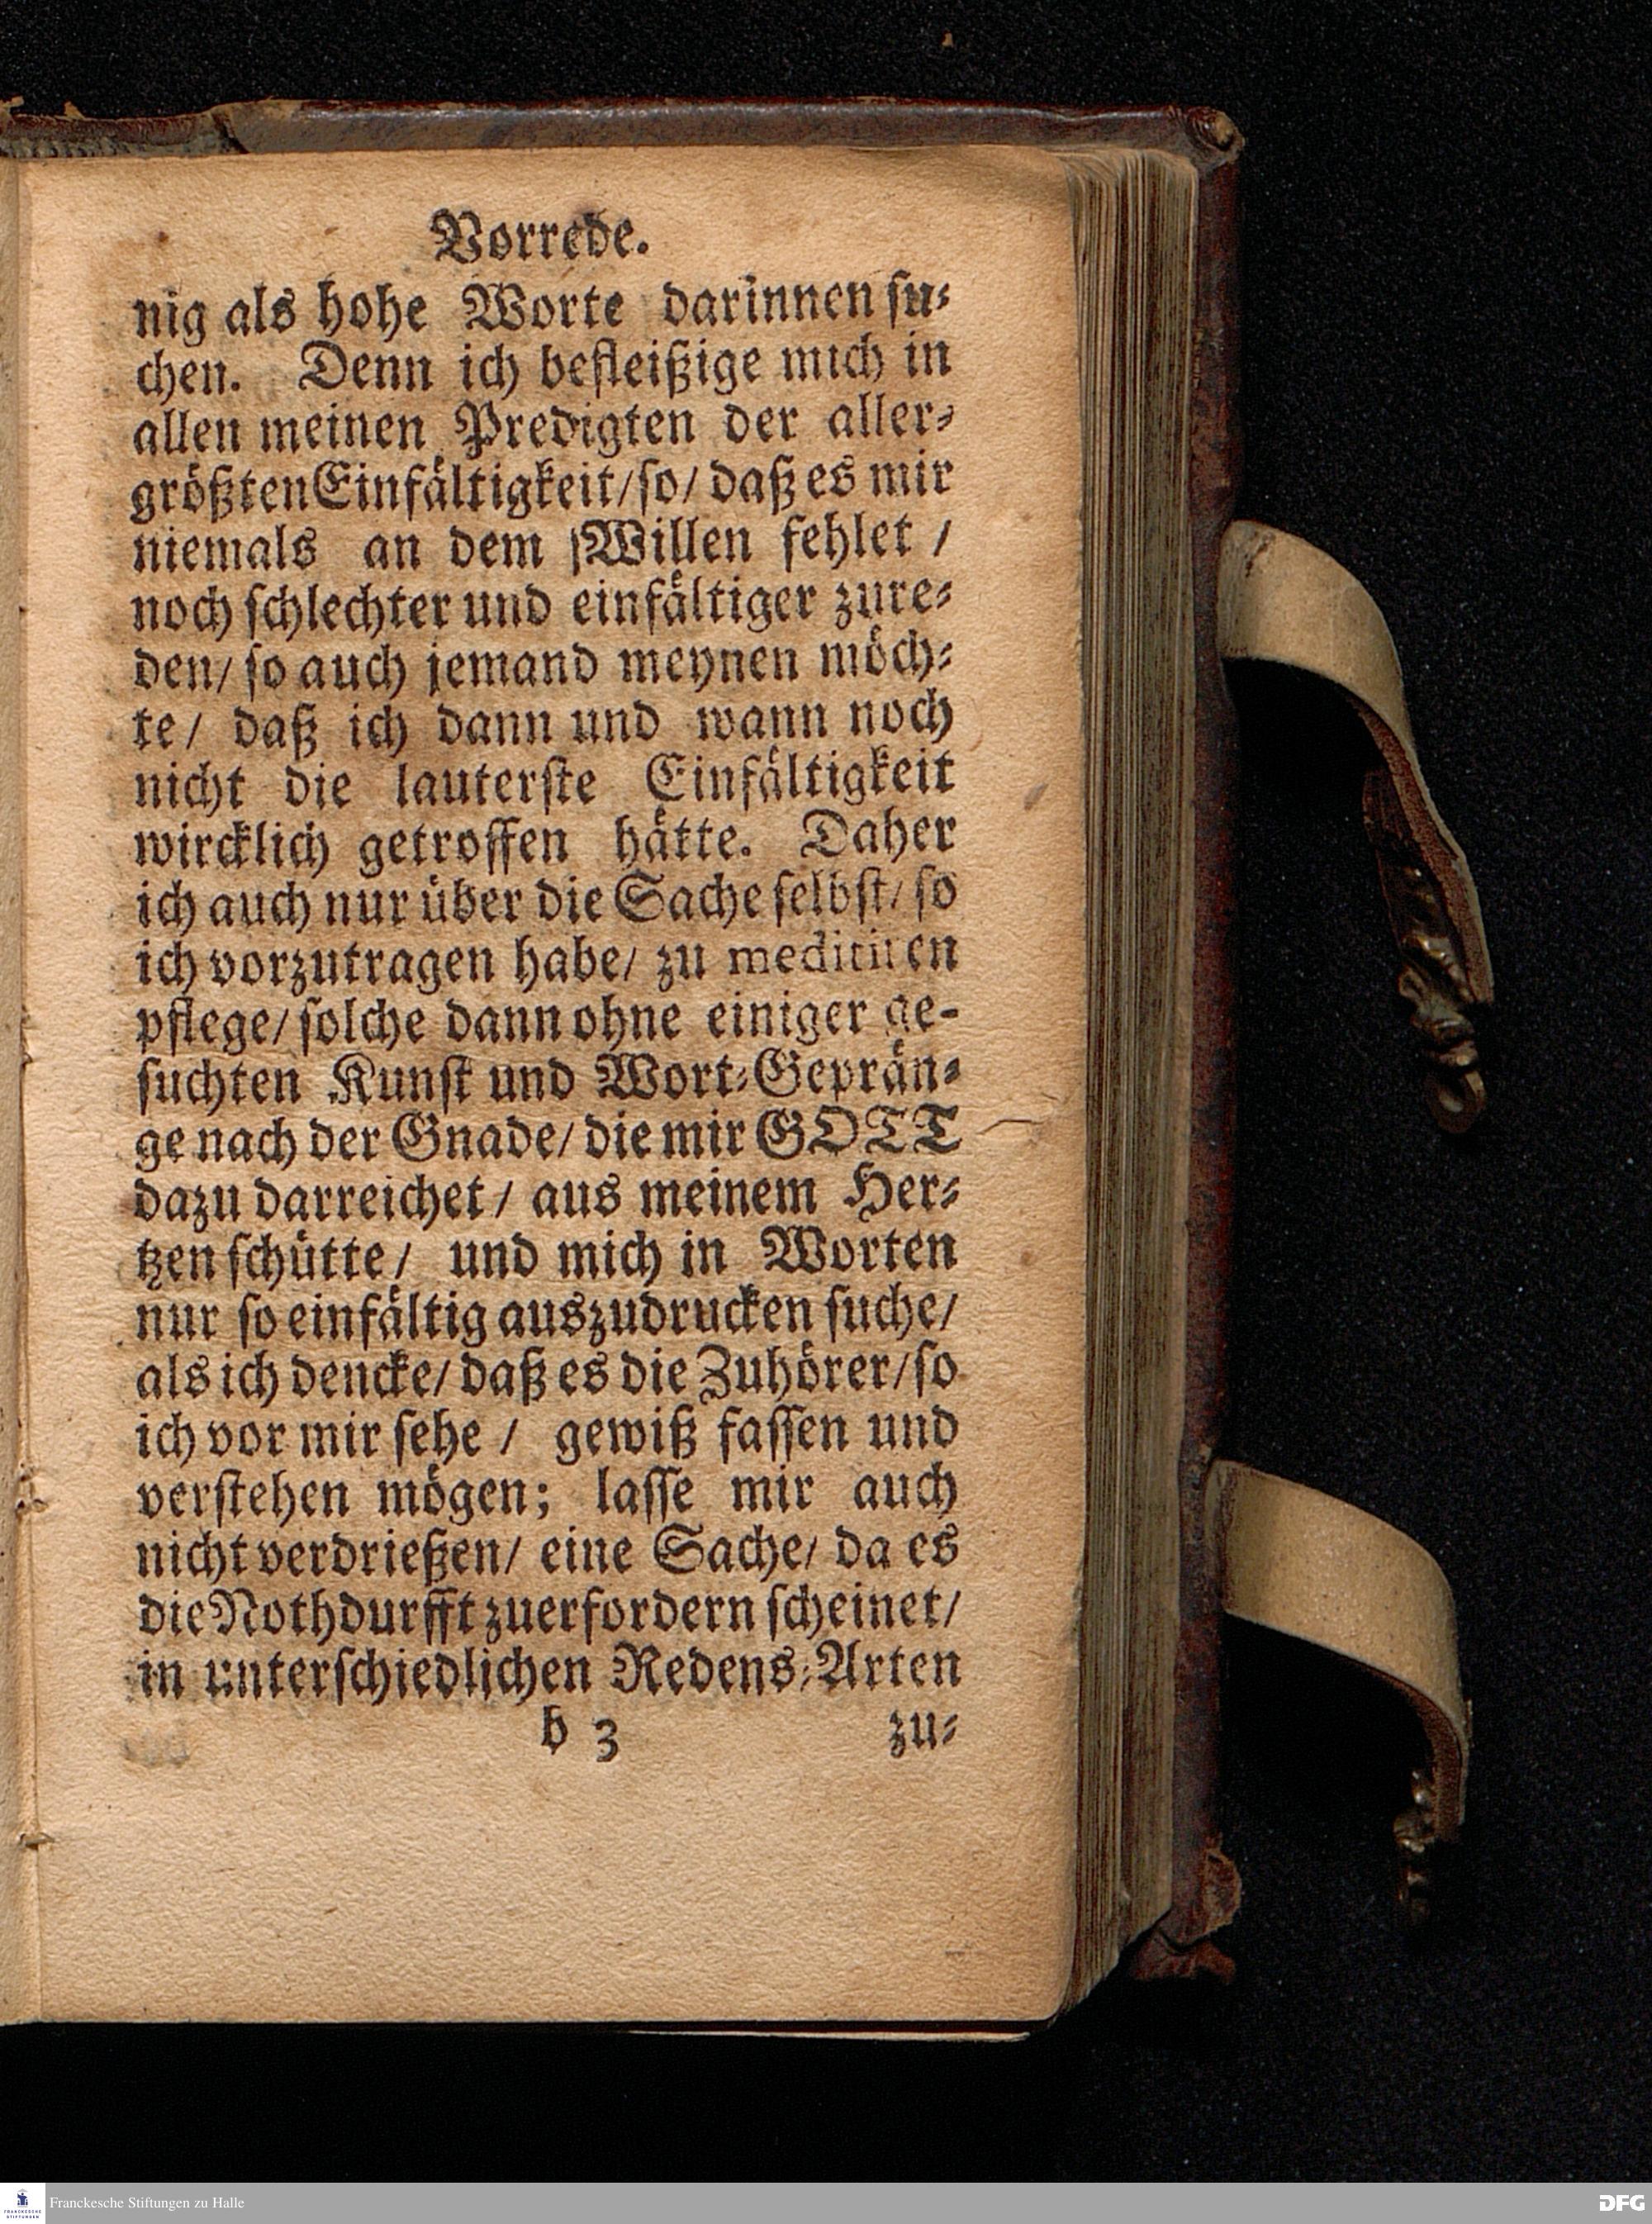 Vorrede.
nig als hohe Worte darinnen su-
chen. Denn ich befleißige mich in
allen meinen Predigten der aller-
größten Einfältigkeit/ so/ daß es mir
niemals an dem Willen fehlet /
noch schlechter und einfältiger zure-
den/ so auch jemand meynen möch-
te/ daß ich dann und wann noch
nicht die lauterste Einfältigkeit
wircklich getroffen hätte. Daher
ich auch nur über die Sache selbst/ so
ich vorzutragen habe/ zu meditiren
pflege/ solche dann ohne einiger ge-
suchten Kunst und Wort-Geprän-
ge nach der Gnade/ die mir GOTT
dazu darreichet/ aus meinem Her-
tzen schütte/ und mich in Worten
nur so einfältig auszudrucken suche/
als ich dencke/ daß es die Zuhörer/ so
ich vor mir sehe / gewiß fassen und
verstehen mögen; lasse mir auch
nicht verdrießen/ eine Sache/ da es
die Nothdurfft zuerfordern scheinet/
in unterschiedlichen Redens-Arten
b 3 zu-
Franckesche Stiftungen zu Halle
DFG